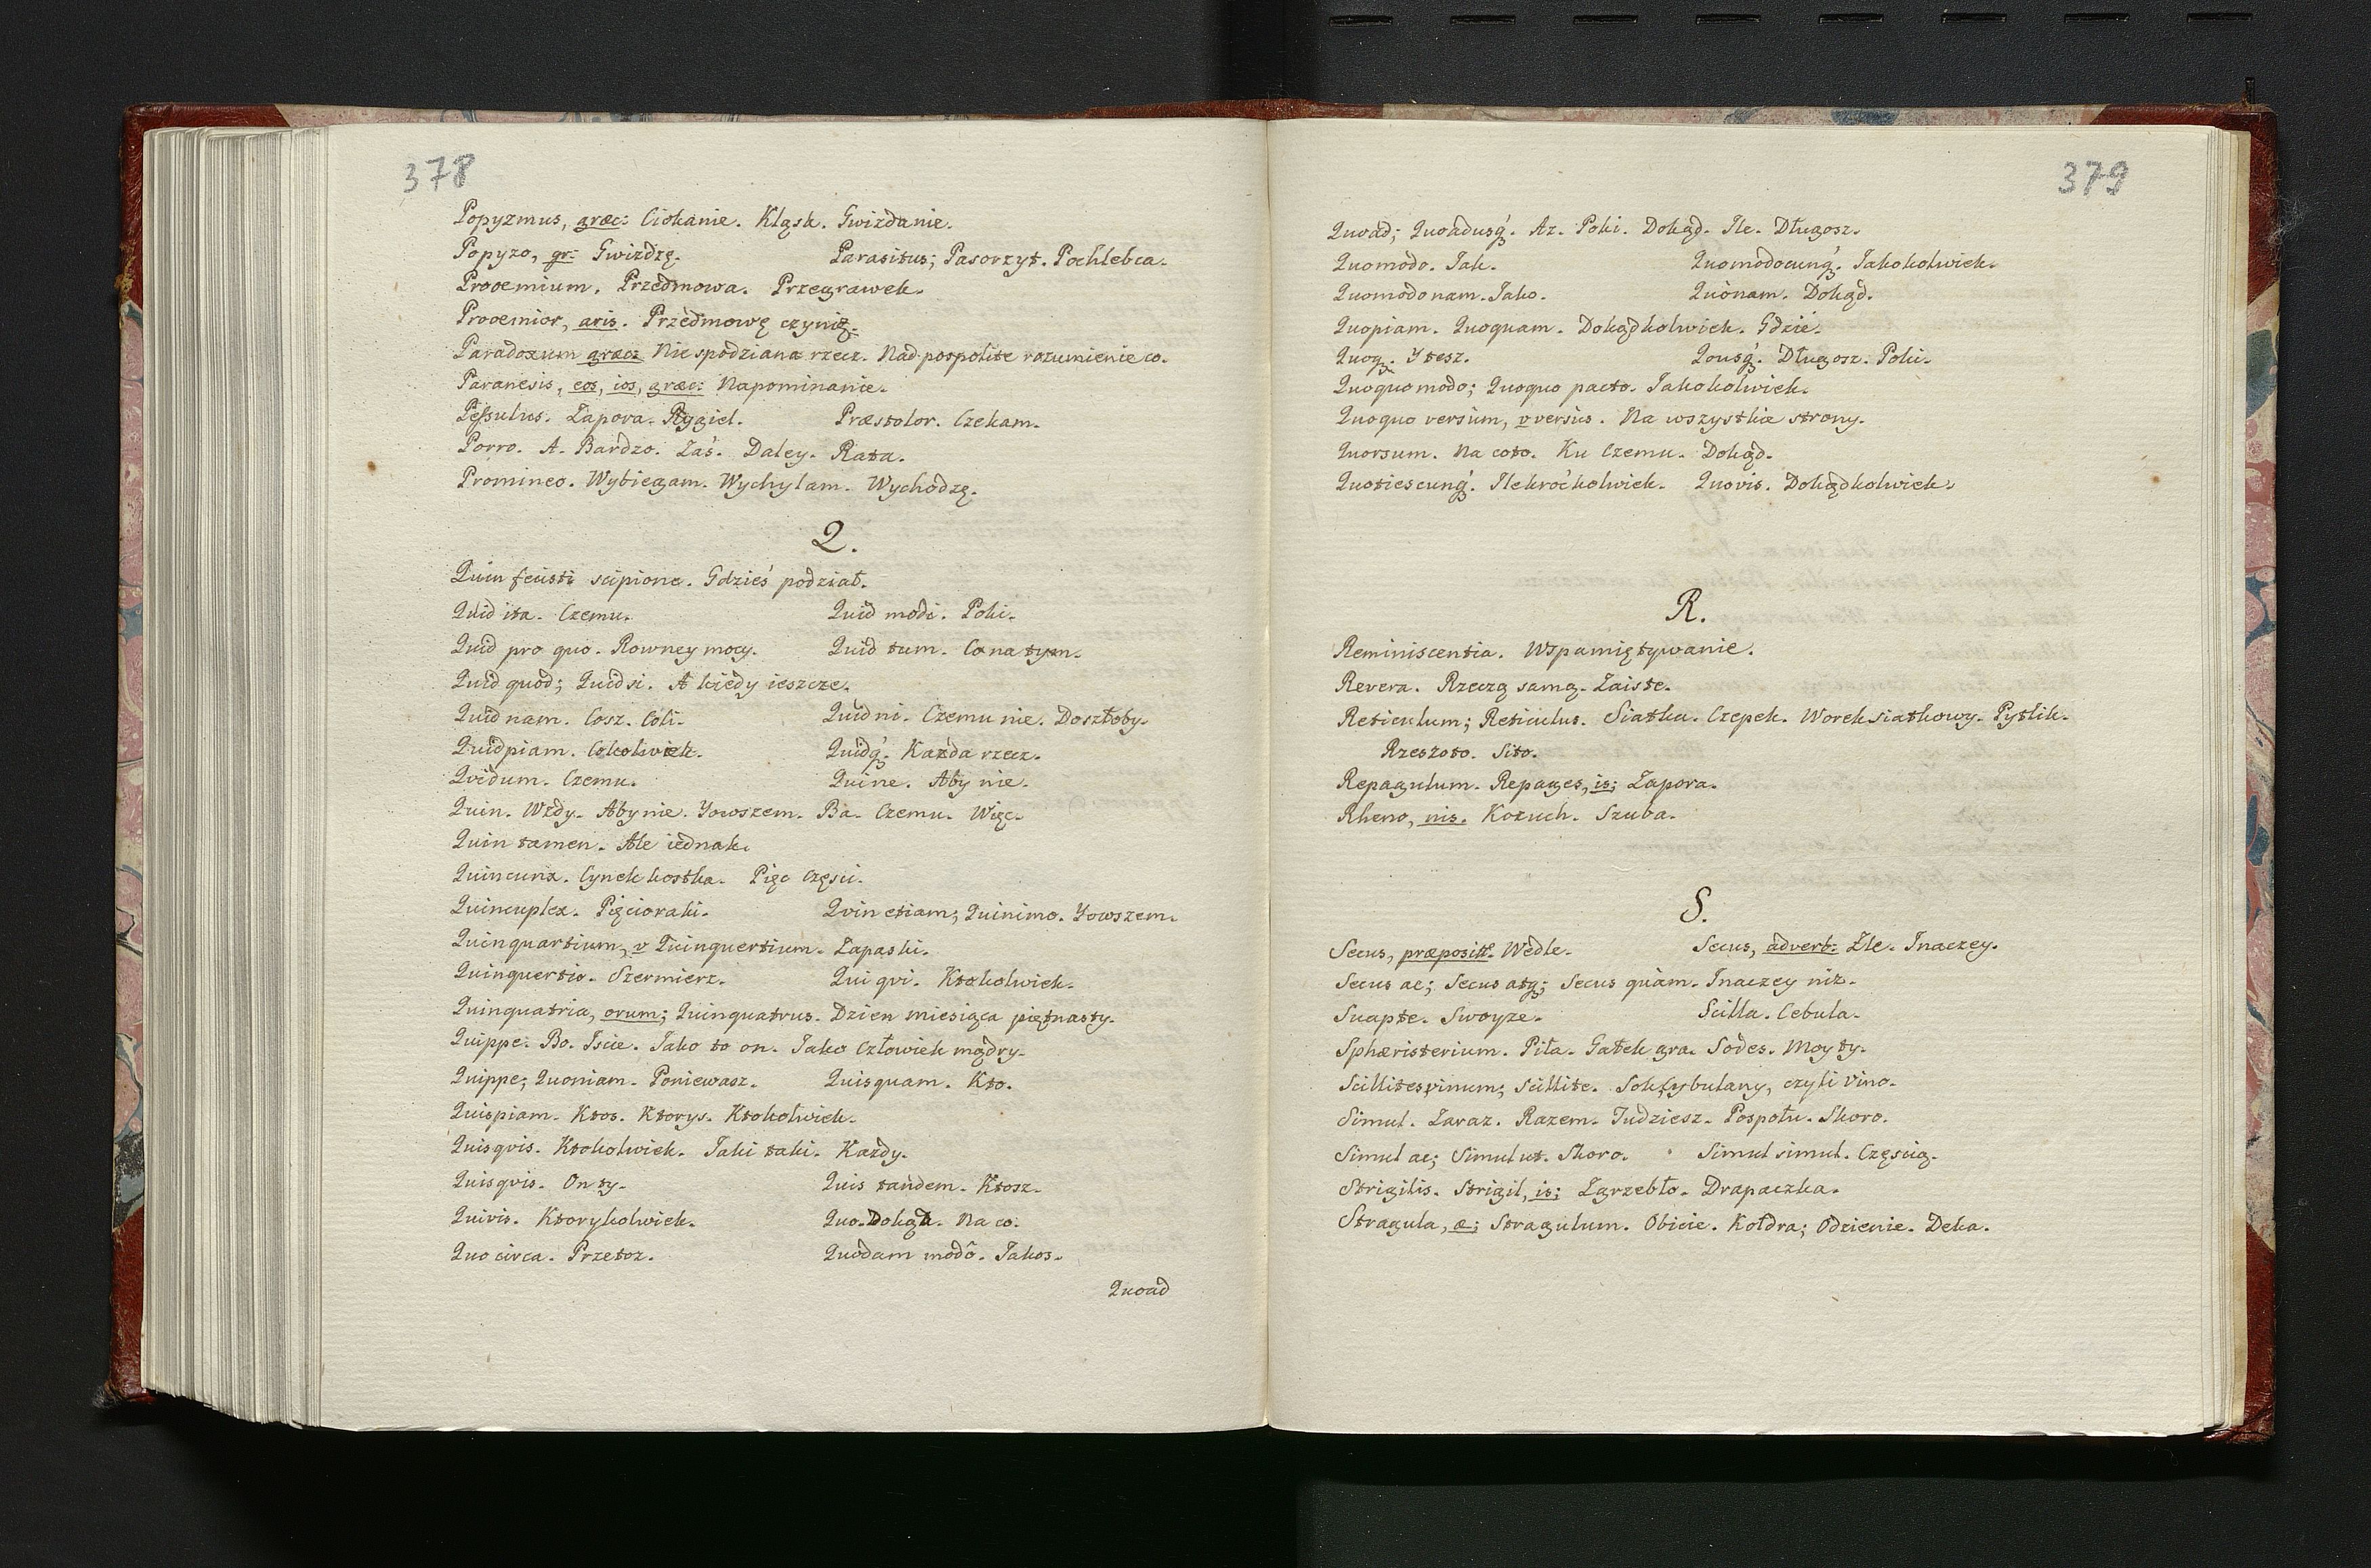 378
Popyzmus, græc: Ciokanie. Kląsk. Gwizdanie.
Popyzo, gr: Gwizdzę. Parasitus; Pasorzyt. Pochlebca.
Prooemium. Przedmowa. Przegrawek.
Prooemior, aris. Przedmowę czynię.
Paradoxum græcz Nie spodziana rzecz. Nad pospolite rozumienie co.
Paranesis, eos, ios, græc: Napominanie.
Pessulus. Zapora. Rygiel. Præstolor. Czekam.
Porro. A. Bardzo. Zaś. Daley. Rata.
Promineo. Wybiegam. Wychylam. Wychodzę.
Q.
Quin fuisti scipione. Gdzieś podział.
Quid ita. Czemu. Quid modi. Poki.
Quid pro quo. Rowney mocy. Quid tum. Co na tym.
Quid quod; Quid si. A kiedy ieszcze.
Quid nam. Cosz. Coli. Quid ni. Czemu nie. Doszłoby.
Quidpiam. Cokolwiek. Quidq́ꝫ. Każda rzecz.
Qvidum. Czemu. Quine. Aby nie.
Quin. Wzdy. Aby nie. Yowszem. Ba. Czemu. Więc.
Quin tamen. Ale iednak.
Quincunx. Cynek kostka. Pięc Częsci.
Quincuplex. Pięcioraki. Qvin etiam; Quinimo. Yowszem.
Quinquartium, v Quinquertium. Zapaski.
Quinquertio. Szermierz. Qui qvi. Ktokolwiek.
Quinquatria, orum; Quinquatrus. Dzien miesiąca piętnasty.
Quippe. Bo. Iscie. Jako to on. Jako Człowiek mądry.
Quippe; Quoniam. Poniewasz. Quisquam. Kto.
Quispiam. Ktos. Ktorys. Ktokolwiek.
Quisqvis. Ktokolwiek. Taki taki. Kazdy.
Quisqvis. On ty. Quis tandem. Ktosz.
Quivis. Ktorykolwiek. Quo. Dokąd. Na co.
Quo circa. Przetoz. Quodam modô. Jakos.
Quoad
379
Quoad; Quoadusq́ꝫ. Az. Poki. Dokąd. Ile. Długosz.
Quomodo. Jak. Quomodocunq́ꝫ. Jakokolwiek.
Quomodonam. Jako. Quònam. Dokąd.
Quopiam. Quoquam. Dokądkolwiek. Gdzie.
Quoqꝫ. Y tesz. Qousq́ꝫ. Długosz. Poki.
Quoquo modo; Quoquo pacto. Jakokolwiek.
Quoquo versum, v versus. Na wszystkie strony.
Quorsum. Na coto. Ku Czemu. Dokąd.
Quotiescunq́ꝫ. Ilekroćkolwiek. Quovis. Dokądkolwiek.
R.
Reminiscentia. Wspamiętywanie.
Revera. Rzeczą samą. Zaiste.
Reticulum; Reticulus. Siatka. Czepek. Worek siatkowy. Pytlik.
Rzeszoto. Sito.
Repagulum. Repages, is; Zapora.
Rheno, nis. Kozuch. Szuba.
S.
Secus, præposit. Wedle. Secus, adverb: Zle. Inaczey.
Secus ac; Secus atqꝫ; Secus quàm. Inaczey niż.
Suapte. Swoyze. Scilla. Cebula.
Sphæristerium. Piła. Gałek gra. Sodes. Moy ty.
Scillites vinum; Scillite. Sok Cybulany, czyli vino.
Simul. Zaraz. Razem. Tudziesz. Pospołu. Skoro.
Simul ac; Simul ut. Skoro. Simul simul. Częscią.
Strigilis. Strigil, is; Zgrzebło. Drapaczka.
Stragula, æ; Stragulum. Obicie. Kołdra; Odzienie. Deka.